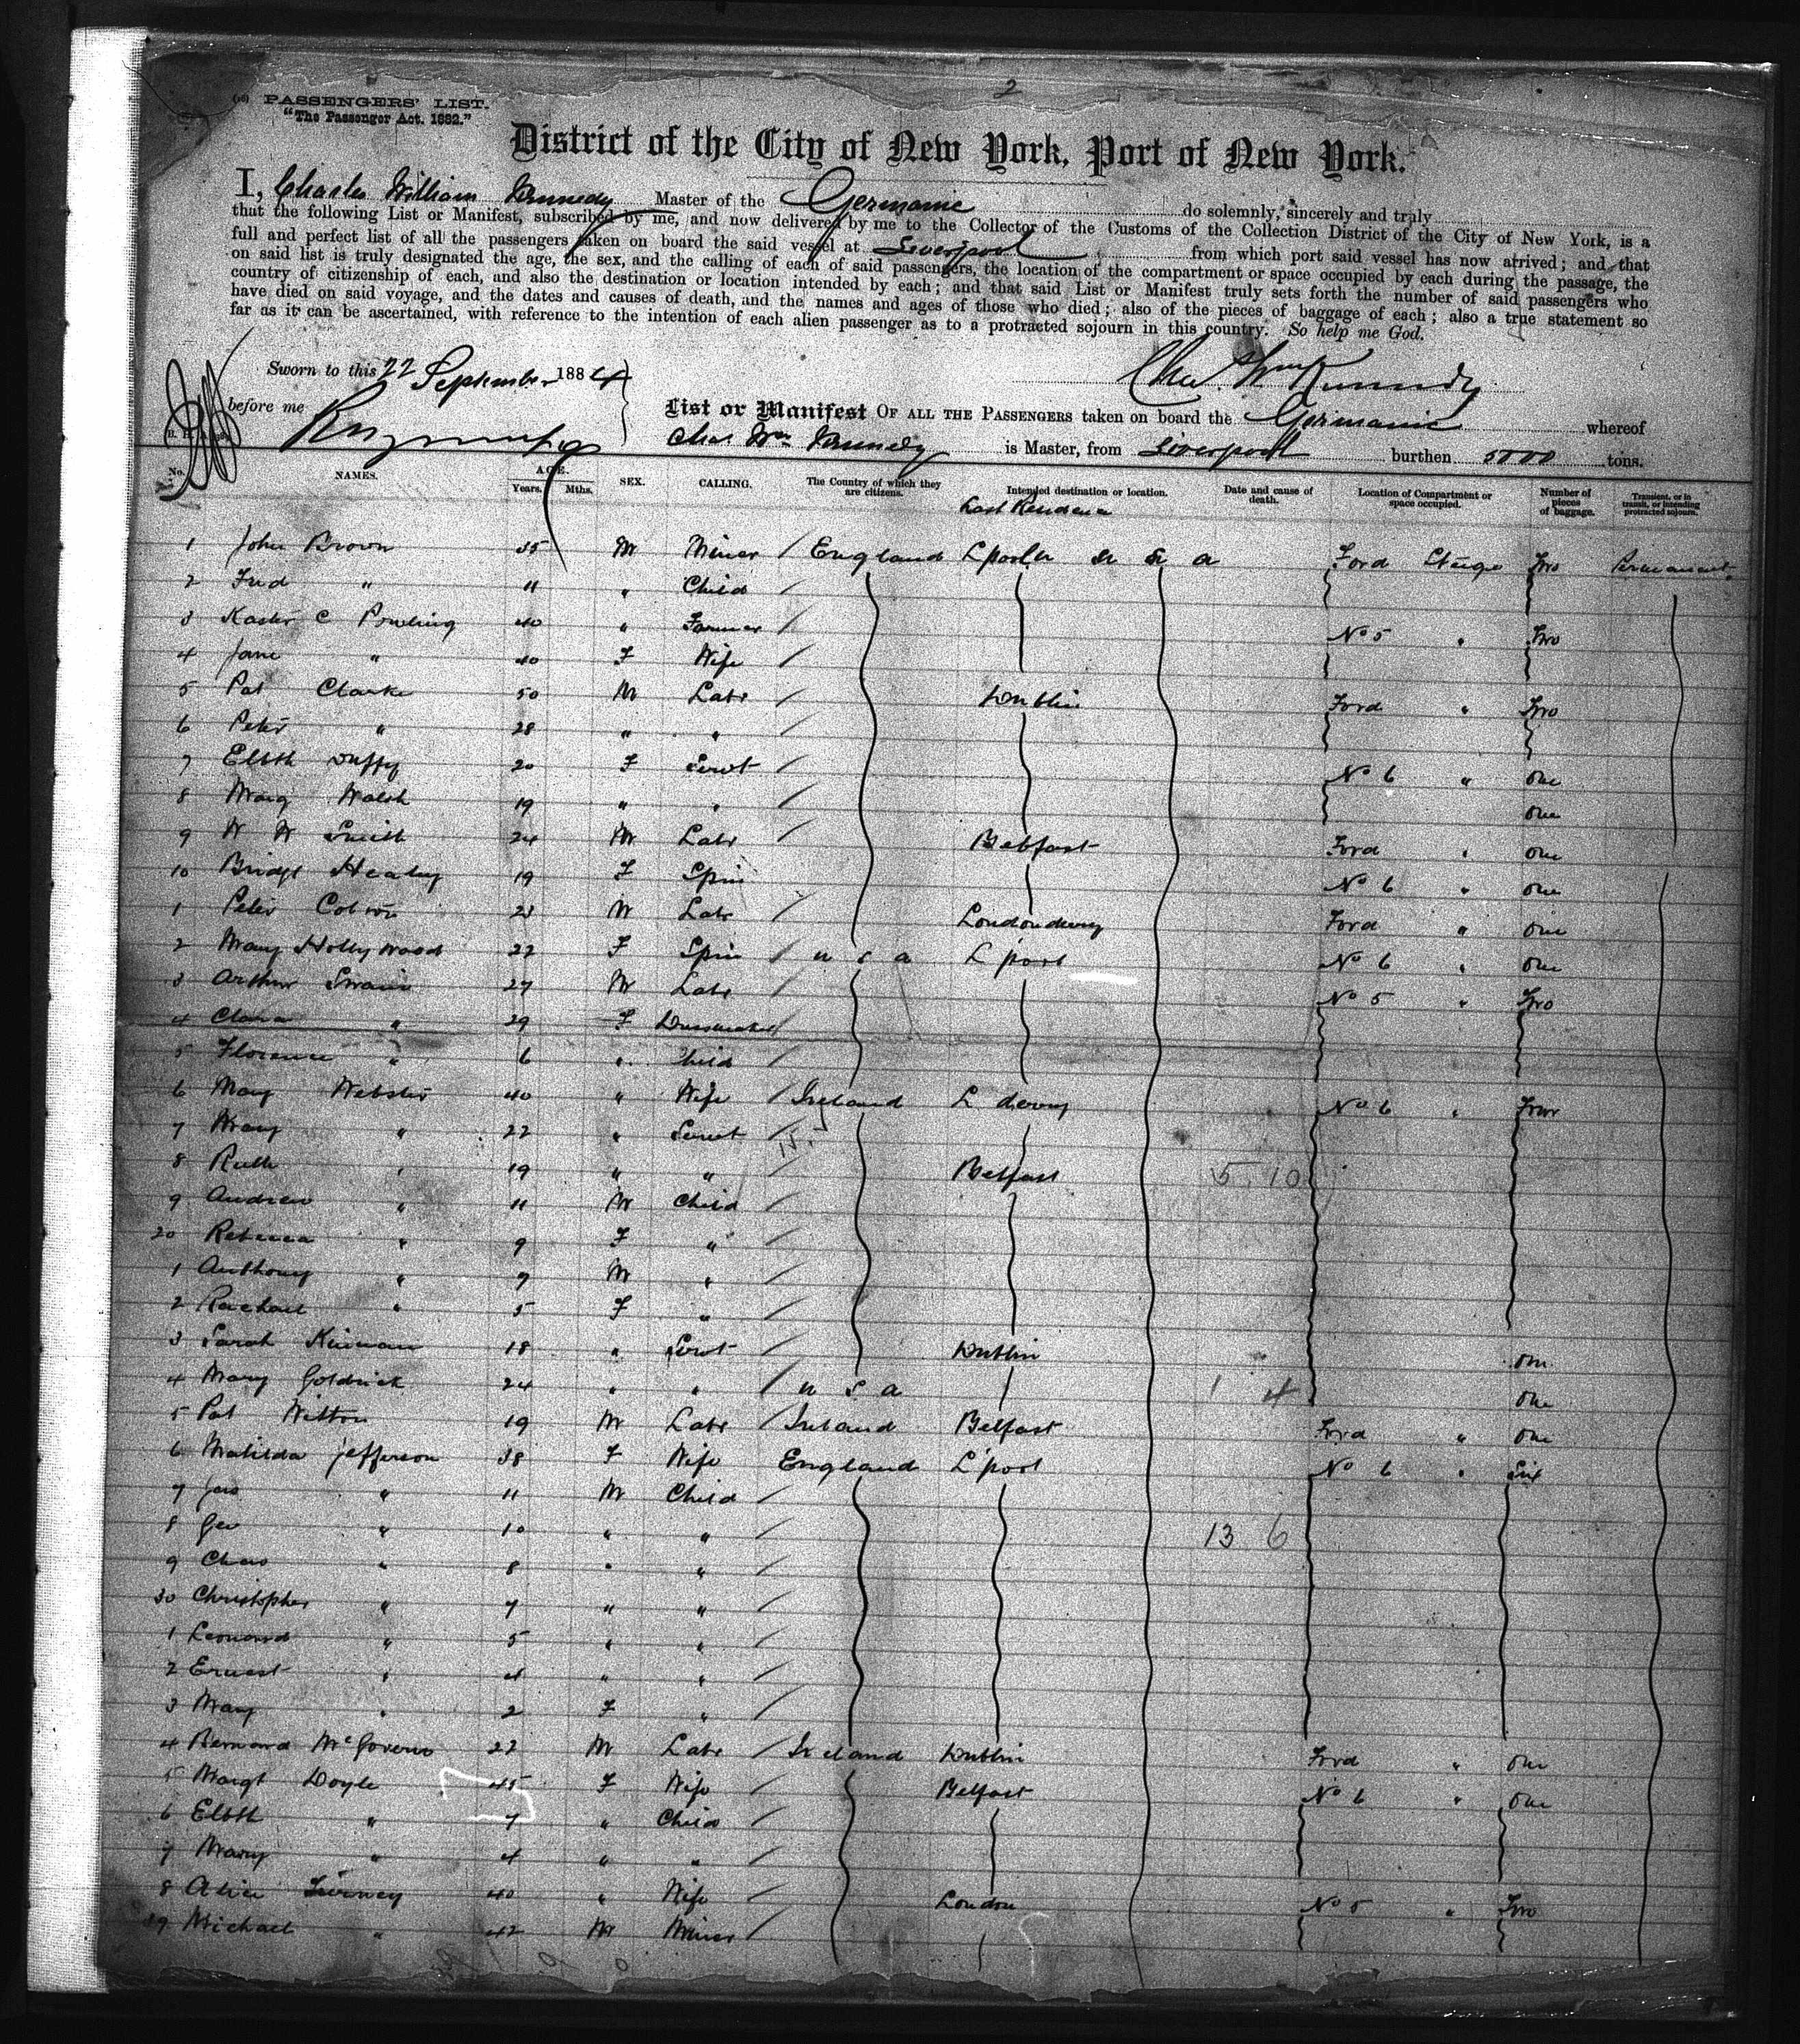 2
PASSENGERS' LIST.
"The Passenger Act. 1882."
District of the City of New York, Port of New York.
I, Charles William Kennedy Master of the Germanic do solemnly, sincerely and truly
that the following List or Manifest, subscribed by me, and now delivered by me to the Collector of the Customs of the Collection District of the City of New York, is a
full and perfect list of all the passengers taken on board the said vessel at Liverpool from which port said vessel has now arrived; and that
on said list is truly designated the age, the sex, and the calling of each of said passengers, the location of the compartment or space occupied by each during the passage, the
country of citizenship of each, and also the destination or location intended by each; and that said List or Manifest truly sets forth the number of said passengers who
have died on said voyage, and the dates and causes of death, and the names and ages of those who died; also of the pieces of baggage of each; also a true statement so
far as it can be ascertained, with reference to the intention of each alien passenger as to a protracted sojourn in this country. So help me God.
Sworn to this 22 September 1884
Chas. Wm Kennedy
before me
List or Manifest OF ALL THE PASSENGERS taken on board the Germanic whereof
Chas. Wm Kennedy is Master, from Liverpool burthen 5000 tons.
No. NAMES. AGE. Years. Mths. SEX. CALLING. The Country of which they are citizens. Intended destination or location. Date and cause of death. Location of Compartment or space occupied. Number of pieces of baggage. Transient, or in transit, or intending protracted sojourn.
Last Residence
1 John Brown 35 M Miner / England L'pool U S A Ford Stage Two Permanent
2 Fred " 11 " Child /
3 C Powling 40 " Farmer / No 5 " Two
4 Jane " 40 F Wife /
5 Pat Clarke 50 M Labr / Dublin Ford " Two
6 Peter " 28 " " /
7 Elbth Duffy 20 F Servt / No 6 " One
8 Marg Walsh 19 " " / One
9 W W Smith 24 M Labr / Belfast Ford " One
10 Bridgt Healy 19 F Spin No 6 " One
1 Peter 23 M Labr / Londonderry Ford " One
2 Mary Hollywood 22 F Spin / U S A L'pool No 6 " One
3 Arthur Swain 27 M Labr / No 5 " Two
4 Clara " 29 F Dressmaker /
5 Florence " 6 " Child /
6 Mary Webster 40 " Wife / Ireland L'derry No 6 " Four
7 Mary " 22 " Servt /
8 Ruth " 19 " " / Belfast 5 10
9 Andrew " 11 M Child /
20 Rebecca " 9 F " /
1 Anthony " 7 M " /
2 Rachael " 5 F " /
3 Sarah 18 " Servt / Dublin One
4 Mary Goldrick 24 " " / U S A 1 4 One
5 Pat Witton 19 M Labr / Ireland Belfast Ford " One
6 Matilda Jefferson 38 F Wife England L'pool No 6 " Six
7 Jas " 11 M Child /
8 Geo " 10 " " / 13 6
9 Chas " 8 " " /
30 Christopher " 7 " " /
1 Leonard " 5 " " /
2 Ernest " 4 " " /
3 Mary " 2 F " /
4 Bernard McGovern 22 M Labr / Ireland Dublin Ford " One
5 Margt Doyle 45 F Wife / Belfast No 6 " One
6 Elbth " 7 " Child /
7 Mary " 4 " " /
8 Alice Tierney 40 " Wife / London No 5 " Two
39 Michael " 42 M Miner /